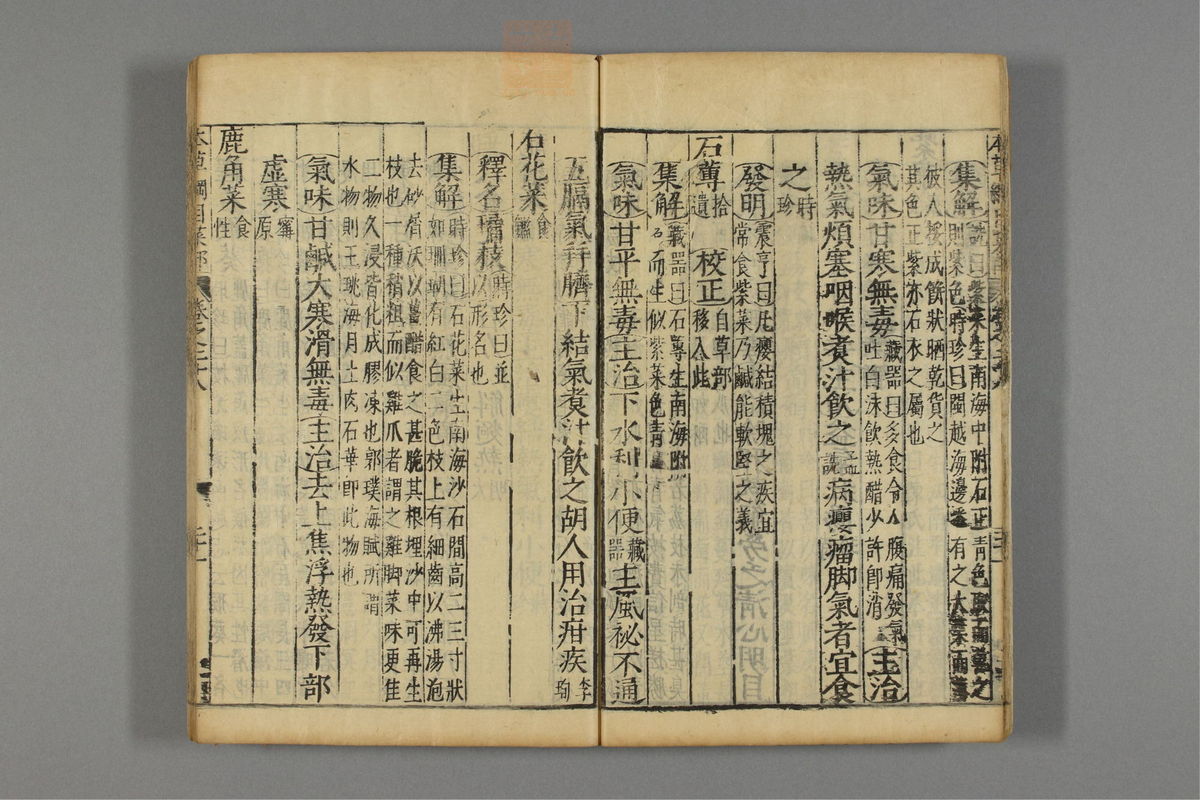 集解詵曰紫菜生南海中附石正青色取而乾之
則紫色時珍曰閩越海邊悉有之大葉而薄
彼人挼成餅狀晒乾貨之
其色正紫亦石衣之屬也
氣味甘寒無毒藏器曰多食令人腹痛發氣
吐白沫飲熱醋少許即消主治
熱氣煩塞咽喉煮汁飲之孟詵病癭瘤脚氣者宜食
之時珍
發明震亨曰凡癭結積塊之疾宜
常食紫菜乃鹹能軟堅之義
石蓴拾遺 校正自草部移入此
集解藏器曰石蓴生南海附
石而生似紫菜色青
氣味甘平無毒主治下水利小便藏器主風祕不通
五膈氣并臍下結氣煮汁飲之胡人用治疳疾李珣
石花菜食鑑
釋名瓊枝時珍曰並以形名也
集解時珍曰石花菜生南海沙石間高二三寸狀
如珊瑚有紅白二色枝上有細齒以沸湯泡
去砂屑沃以薑醋食之甚脆其根埋沙中可再生
枝也一種稍粗而似雞爪者謂之雞脚菜味更佳
二物久浸皆化成膠凍也郭璞海賦所謂
水物則玉珧海月土肉石華即此物也
氣味甘鹹大寒滑無毒主治去上焦浮熱發下部
虛寒寧原
鹿角菜食性
本草綱目菜部 卷之二十八